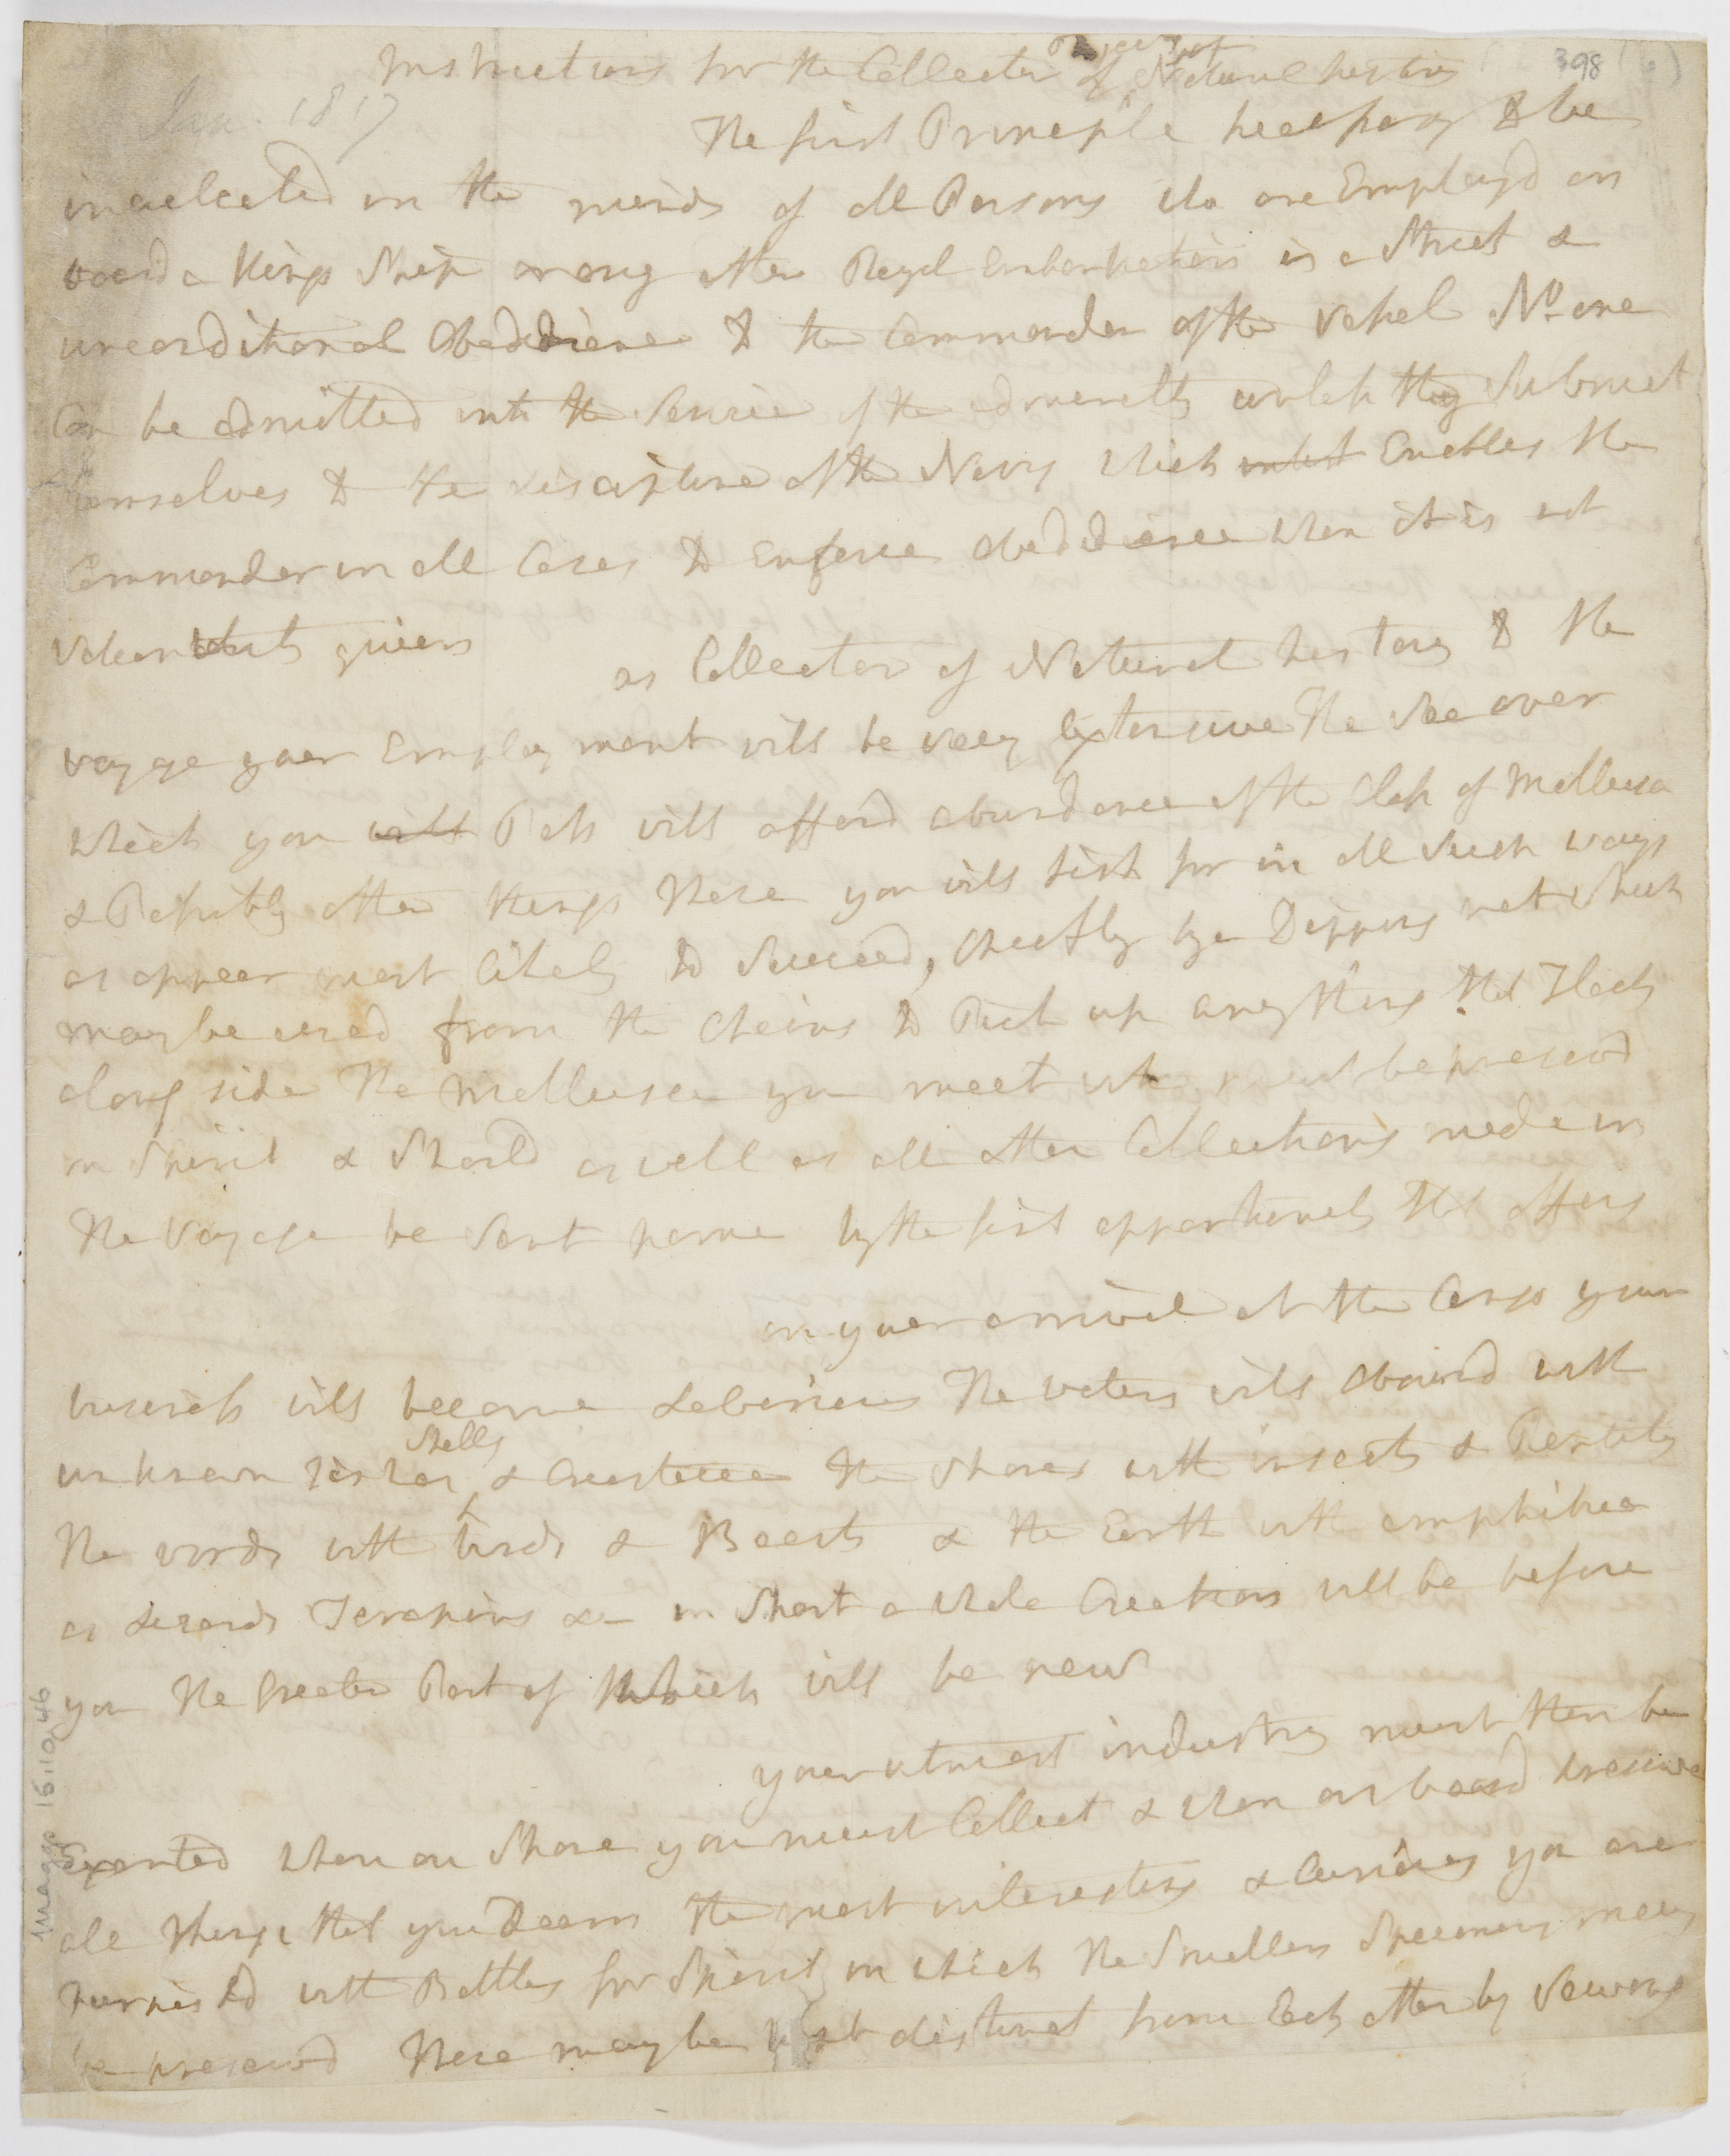 Instructions for the Collector of objects of Natural history
398
Jan. 1817
The first Principle necessary to be
inculcated in the minds of all Persons who are Employd on
board a Kings Ship or any other Royal Embarkation is a Strict &
unconditional Obedience to the Commander of the Vessel No one
Can be admitted into the Service of the admiralty unless they Submit
themselves to the discipline of the Navy which Enables the
Commander in all Cases to Enforce obedience when it is not
Voluntarily given
as Collector of Natural history to the
voyage your Employment will be very Extensive The Sea over
which you will Pass will afford abundance of the Class of Mollusca
& Possibly other things These you will fish for in all Such ways
as appear most likely to Succeed, cheifly by a Dipping net which
may be used from the Chains to Pick up any thing that Floats
along side The Mollusca you meet with must be preservd
in Spirit & Should as well as all other Collections made in
The Voyage be Sent home by the first opportunity that offers
on your arrival at the Congo your
business will become Laborious The waters will abound with
unknown fishes shells & Crustacea the shores with insects & Reptiles
The woods with birds & Beasts & the Earth with amphibia
as Lizards Terapins &c in Short a whole Creation will be before
you The Greater Part of which will be new
your utmost industry must then be
Exerted when on Shore you must Collect & when on board preserve
all things that you Deem the most interesting & Curious you are
furnishd with Bottles for Spirit in which the Smaller Specimens may
be preservd These may be kept distinct from Each other by Sewing
Image 16:10:46